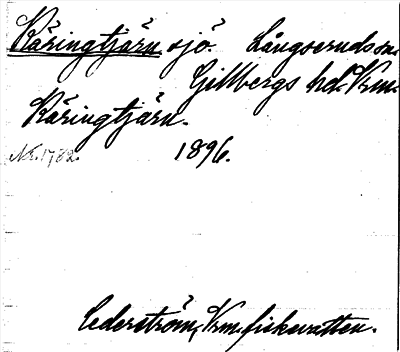 Käringtjärn sjö. Långseruds sn.
Gillbergs hd. Vrm.
Käringtjärn.
Nr. 1782. 1896.
Cederström, Vrm. fiskevatten.